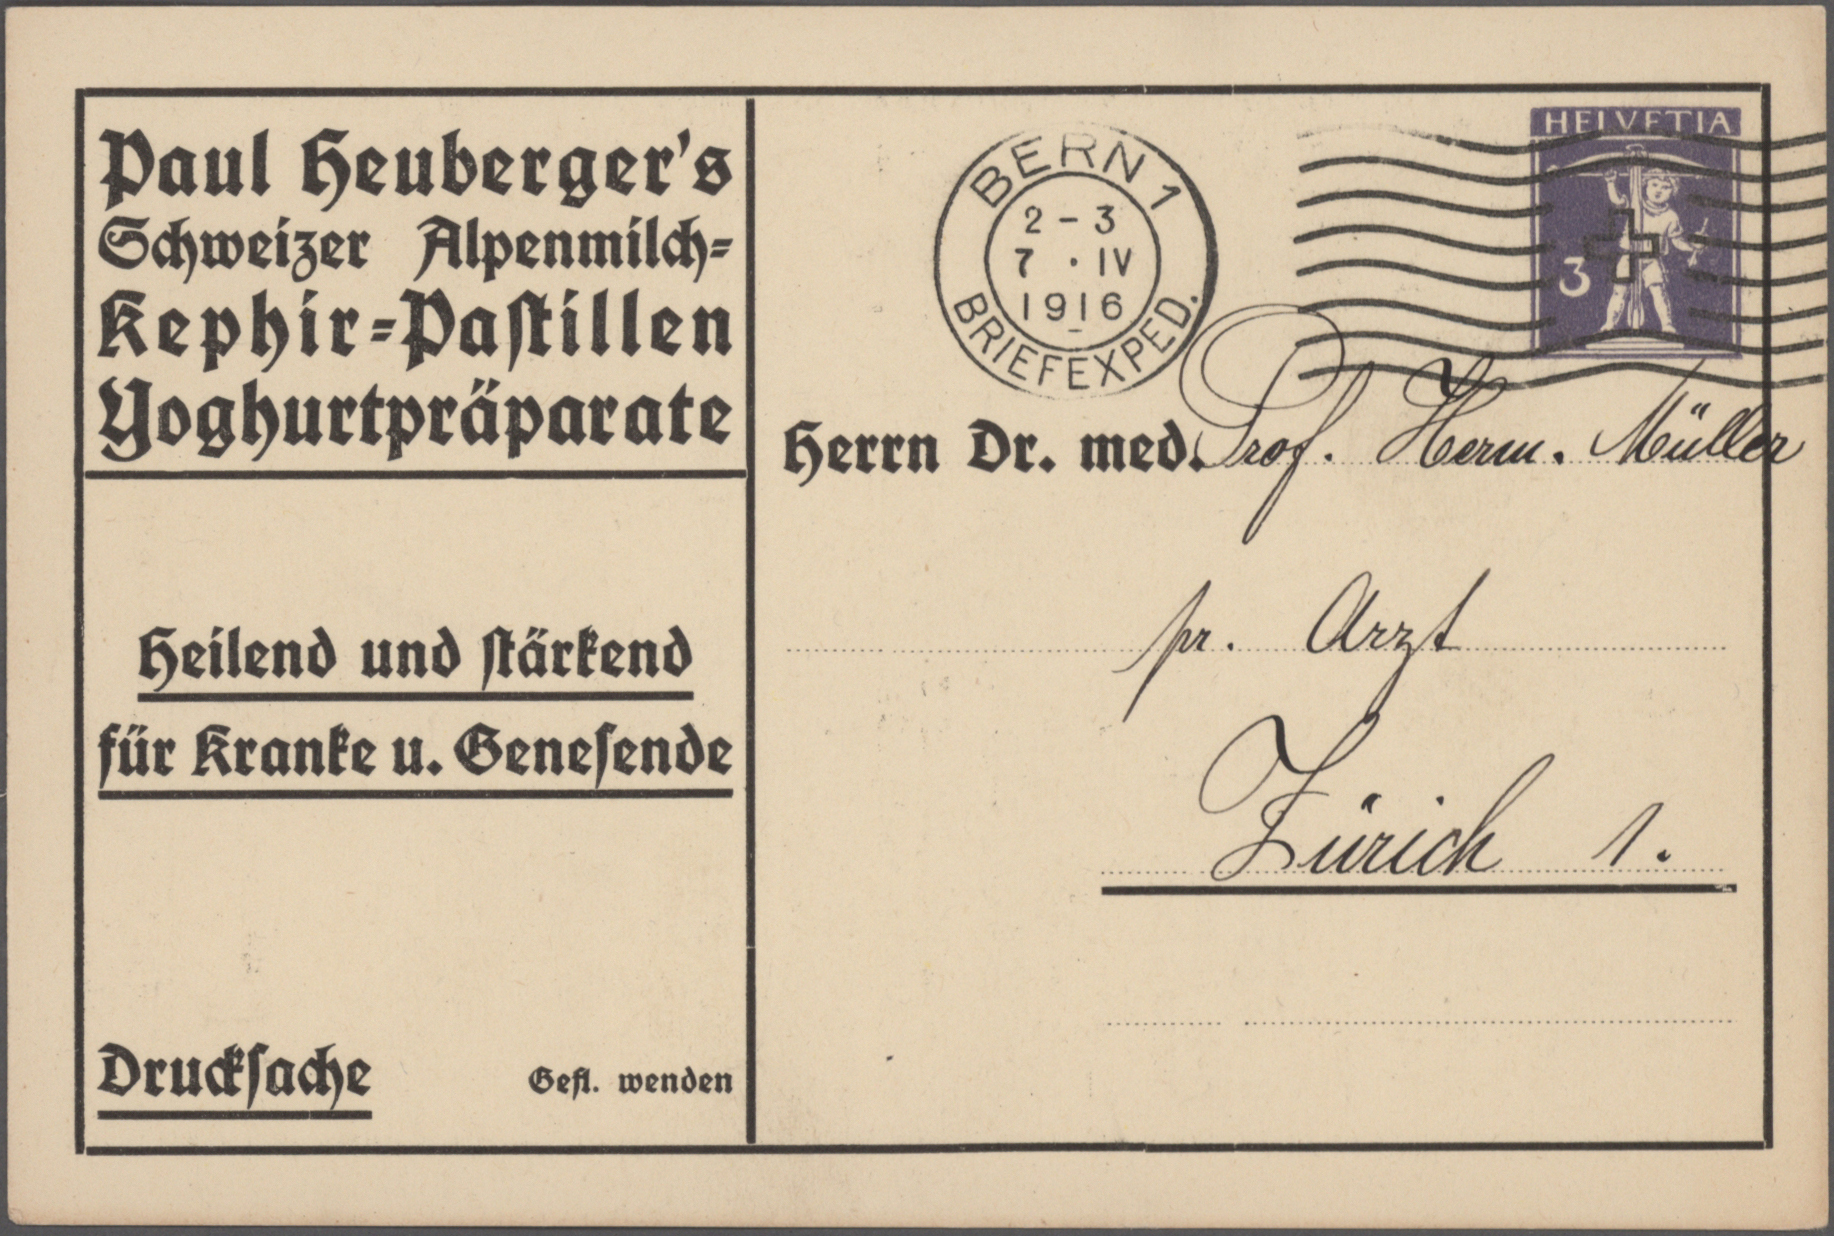 Paul Heuberger's
Schweizer Alpenmilch=
Kephir=Paſtillen
Yoghurtpräparate
Heilend und ſtärkend
für Kranke u. Geneſende
Druckſache
Gefl. wenden
BERN 1
2 - 3
7 · IV
1916
BRIEFEXPED.
HELVETIA
3
Herrn Dr. med. Prof. Herm. Müller
pr. Arzt
Zürich 1.